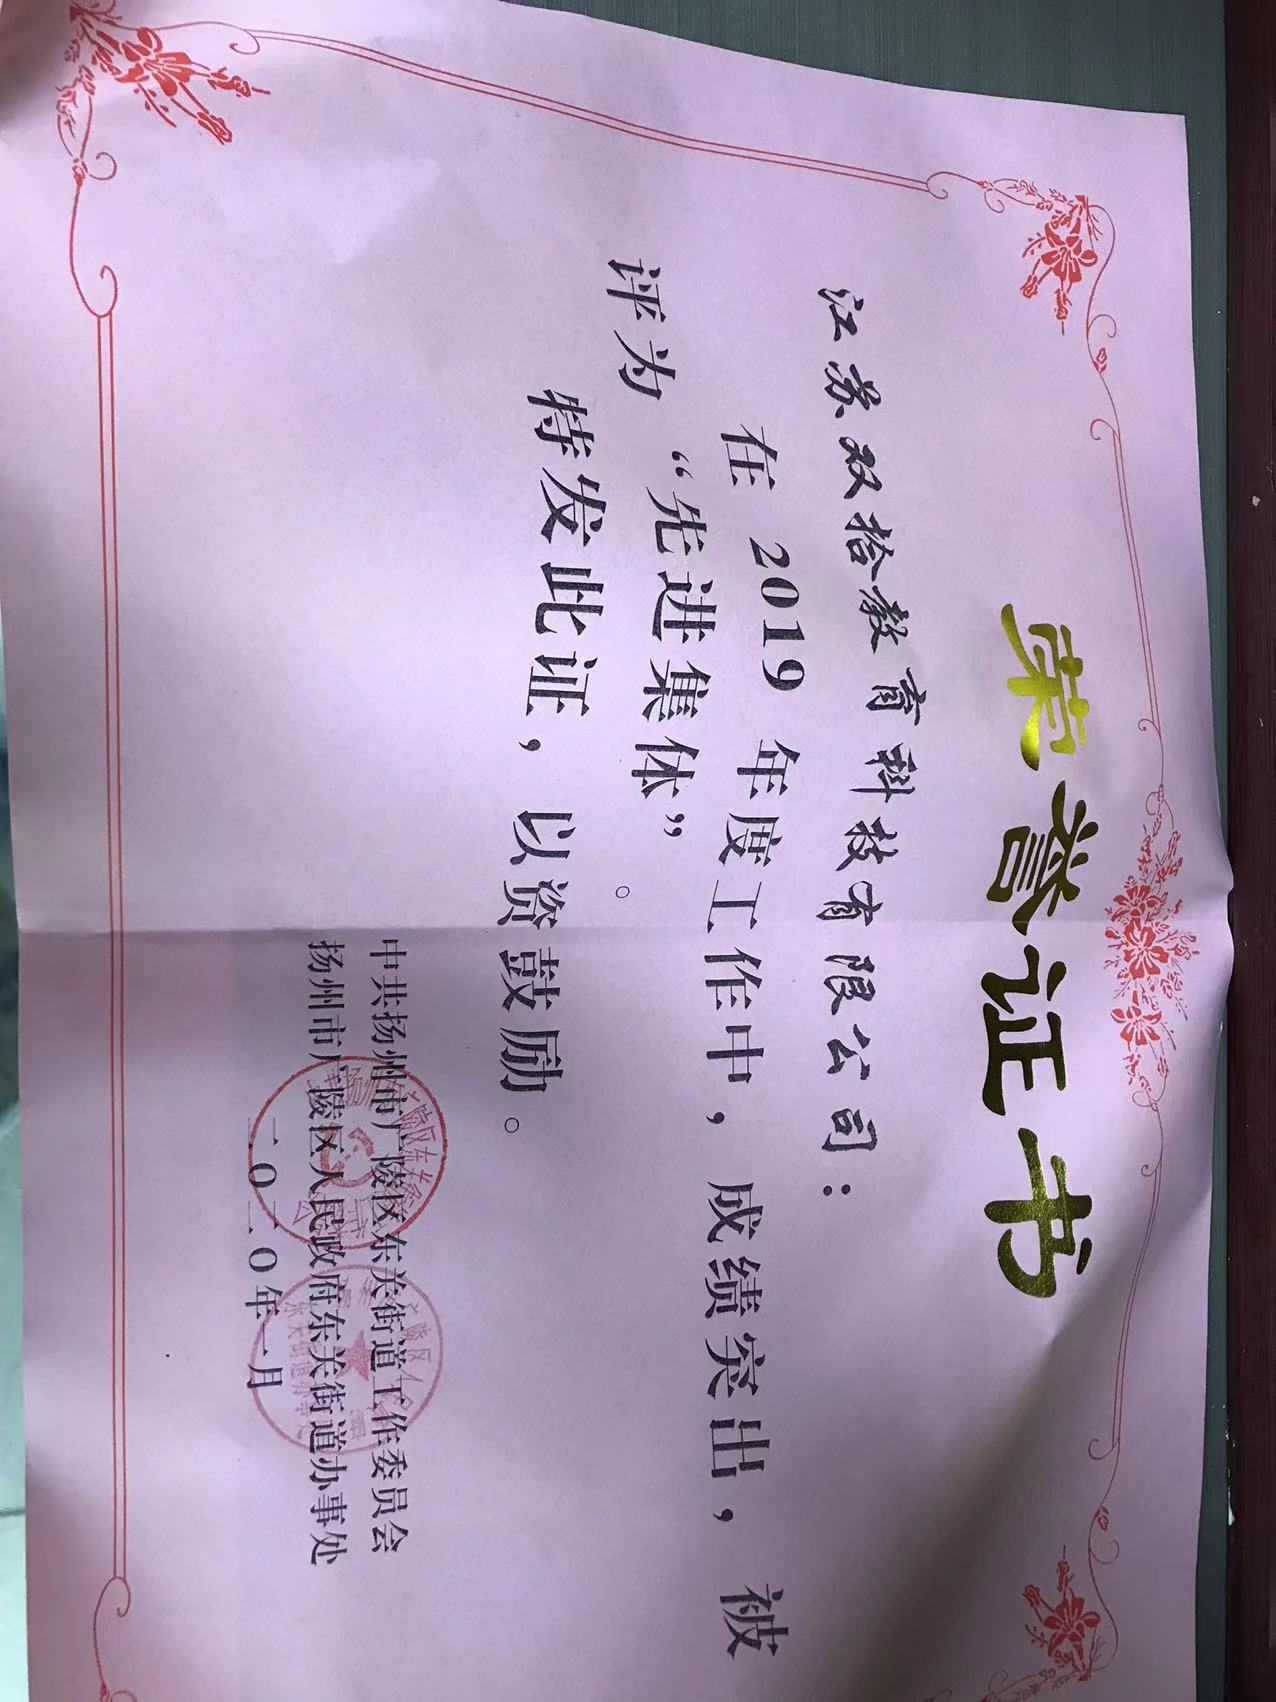 荣誉证书
江苏双拾教育科技有限公司：
在 2019 年度工作中，成绩突出，被
评为“先进集体”。
特发此证，以资鼓励。
中共扬州市广陵区东关街道工作委员会
扬州市广陵区人民政府东关街道办事处
二〇二〇年一月